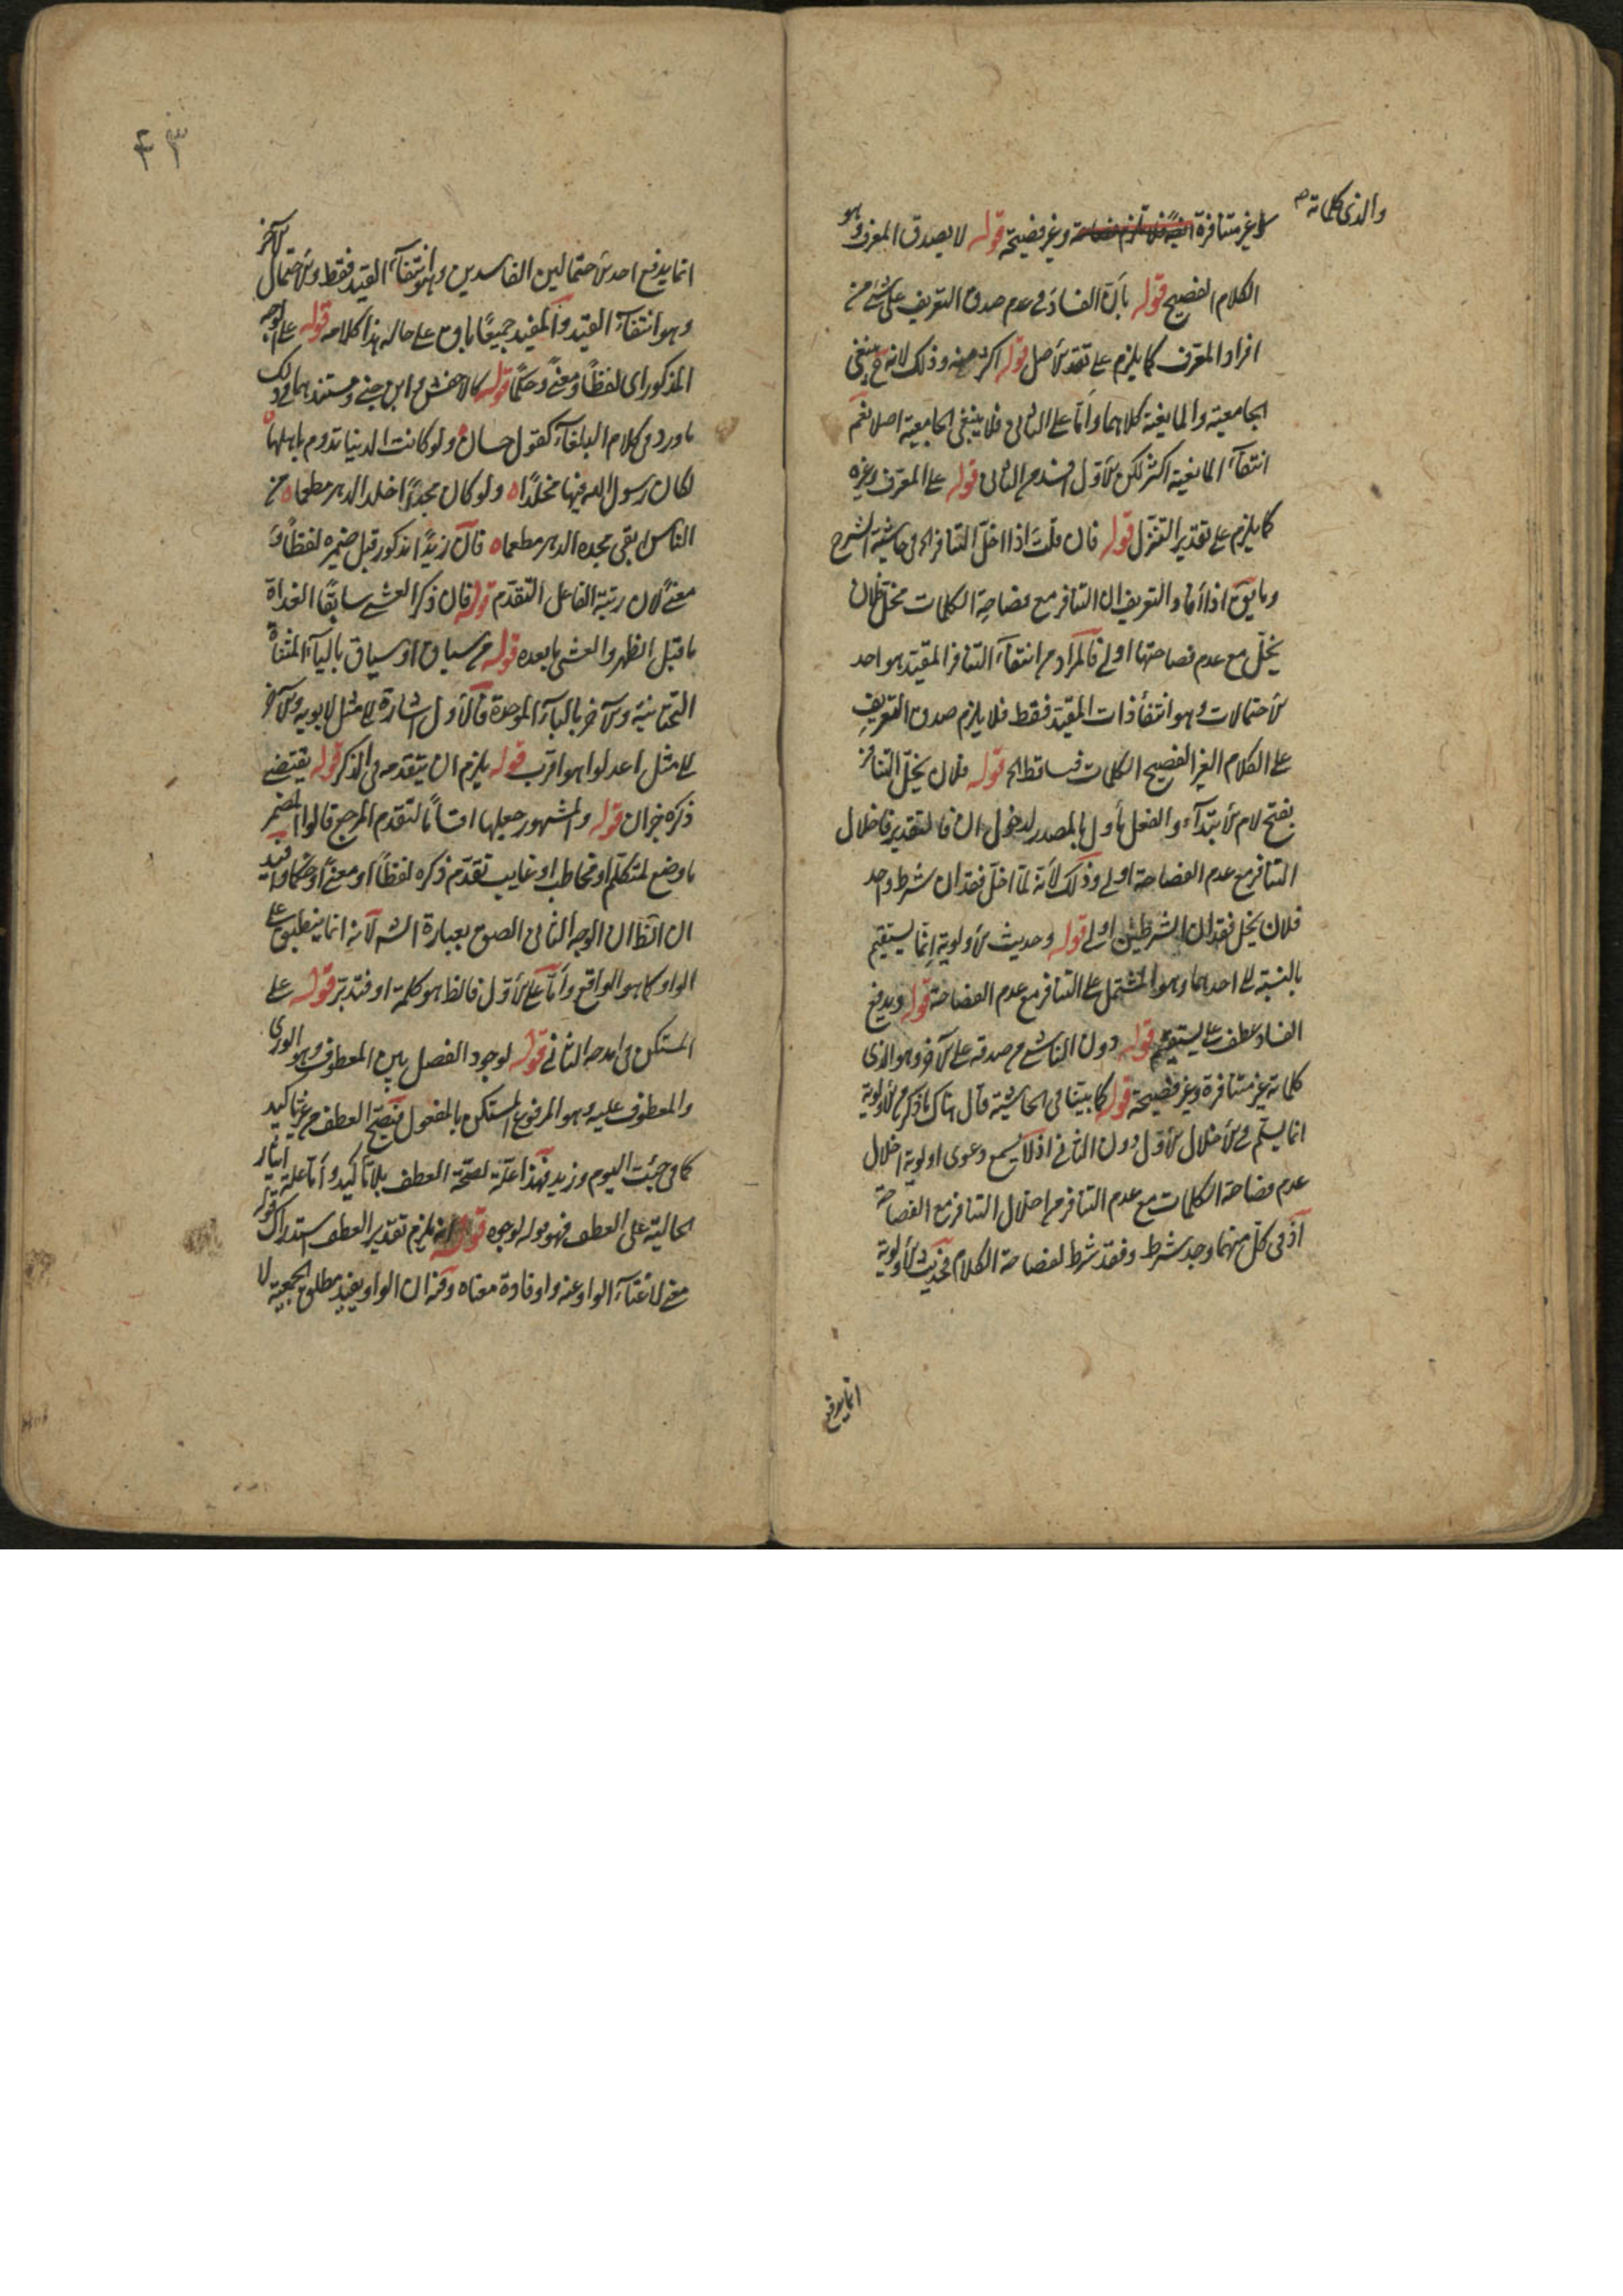 والذى كلماته
غير متنافرة وغير فصيحة قوله لا يصدق المعرف وهو
الكلام الفصيح قوله بأن الفساد فى عدم صدق التعريف على شئ من
افراد المعرف كما يلزم على تقدير الاصل قوله اكثر منه وذلك لانه ح ينبغى
الجامعية والمانعية كلاهما وأما على الثانى فلا ينبغى الجامعية اصلا نعم
انتفآء المانعية اكثر لكن الاول اشد من الثانى قوله على المعرف وغيره
كما يلزم على تقدير التنزل قوله فان قلت اذا اخل التنافر الخ فى حاشية الشرح
وما يق اذا أفاد التعريف ان التنافر مع فصاحة الكلمات مخل فلان
يخل مع عدم فصاحتها اولى فالمراد من انتفآء التنافر المقيد هو احد
الاحتمالات وهو انتفآء ذات المقيد فقط فلا يلزم صدق التعريف
على الكلام الغير الفصيح الكلمات فساقط الخ قوله فلان يخل التنافر
بفتح لام الابتدآء والفعل مأول بالمصدر لدخول ان فالتقدير فاخلال
التنافر مع عدم الفصاحة اولى وذلك لأنه لما اخل فقدان شرط واحد
فلان يخل فقدان الشرطين اولى قوله وحديث الاولوية إنما يستقيم
بالنسبة الى احدهما وهو المشتمل على التنافر مع عدم الفصاحة قوله ويدفع
الفساد عطف على يستقيم قوله دون الناشى من صدقه على الآخر وهو الذى
كلماته غير متنافرة وغير فصيحة قوله كما بينا فى الحاشية قال هناك ما ذكر من الاولوية
انما يستقيم فى الاخلال الاول دون الثانى اذ لا يسمع دعوى اولوية اخلال
عدم فصاحة الكلمات مع عدم التنافر من اخلال التنافر مع الفصاحة
اذ فى كل منهما وجد شرط وفقد شرط لفصاحة الكلام فحديث الأولوية
انما يدفع
٤٣
انما يدفع احد الاحتمالين الفاسدين وهو انتفآء القيد فقط والاحتمال الآخر
وهو انتفآء القيد والمقيد جميعًا باق على حاله هذا كلامه قوله على الوجه
المذكور اى لفظًا ومعنًى وحكمًا قوله كالاخفش وابن جنى ومستندهما فى ذلك
ما ورد فى كلام البلغآء كقول حسان ولو كانت الدنيا تدوم باهلها
لكان رسول الله فيها مخلدًا ولو كان مجدًا اخلد الدهر مطعما من
الناس ابقى مجده الدهر مطعما فان زيدًا مذكور قبل ضميره لفظًا و
معنًى لان رتبة الفاعل التقدم قوله فان ذكر العشى سابقًا الغداة
ما قبل الظهر والعشى ما بعده قوله من سياق او سباق باليآء المثناة
التحتانية والآخر بالبآء الموحدة فالأول اشارة الى مثل لابويه والآخر
الى مثل اعدلوا هو اقرب قوله يلزم ان يتقدمه فى الذكر قوله يقتضى
ذكره خبر ان قوله والمشهور جعلها اقسامًا لتقدم المرجع قالوا المضمر
ما وضع لمتكلم او مخاطب او غايب تقدم ذكره لفظًا او معنًى او حكمًا
ان الظ ان الوجه الثانى الصق بعبارة الش لأنه انما ينطبق على
الواو كما هو الواقع وأما على الأول فالظ هو كلمة او فتدبر قوله على
المستكن فى امدحه الثانى قوله لوجود الفصل بين المعطوف وهو الورى
والمعطوف عليه وهو المرفوع المستكن بالمفعول فيصح العطف من غير تأكيد
كما فى جئت اليوم وزيد فهذا علة لصحة العطف بلا تأكيد وأما علة ايثار
الحالية على العطف فهو قوله لوجوه قوله انه يلزم تقدير العطف استدراك قوله
معى لاغنآء الواو عنه وافادة معناه وفيه ان الواو يفيد مطلق الجمعية لا